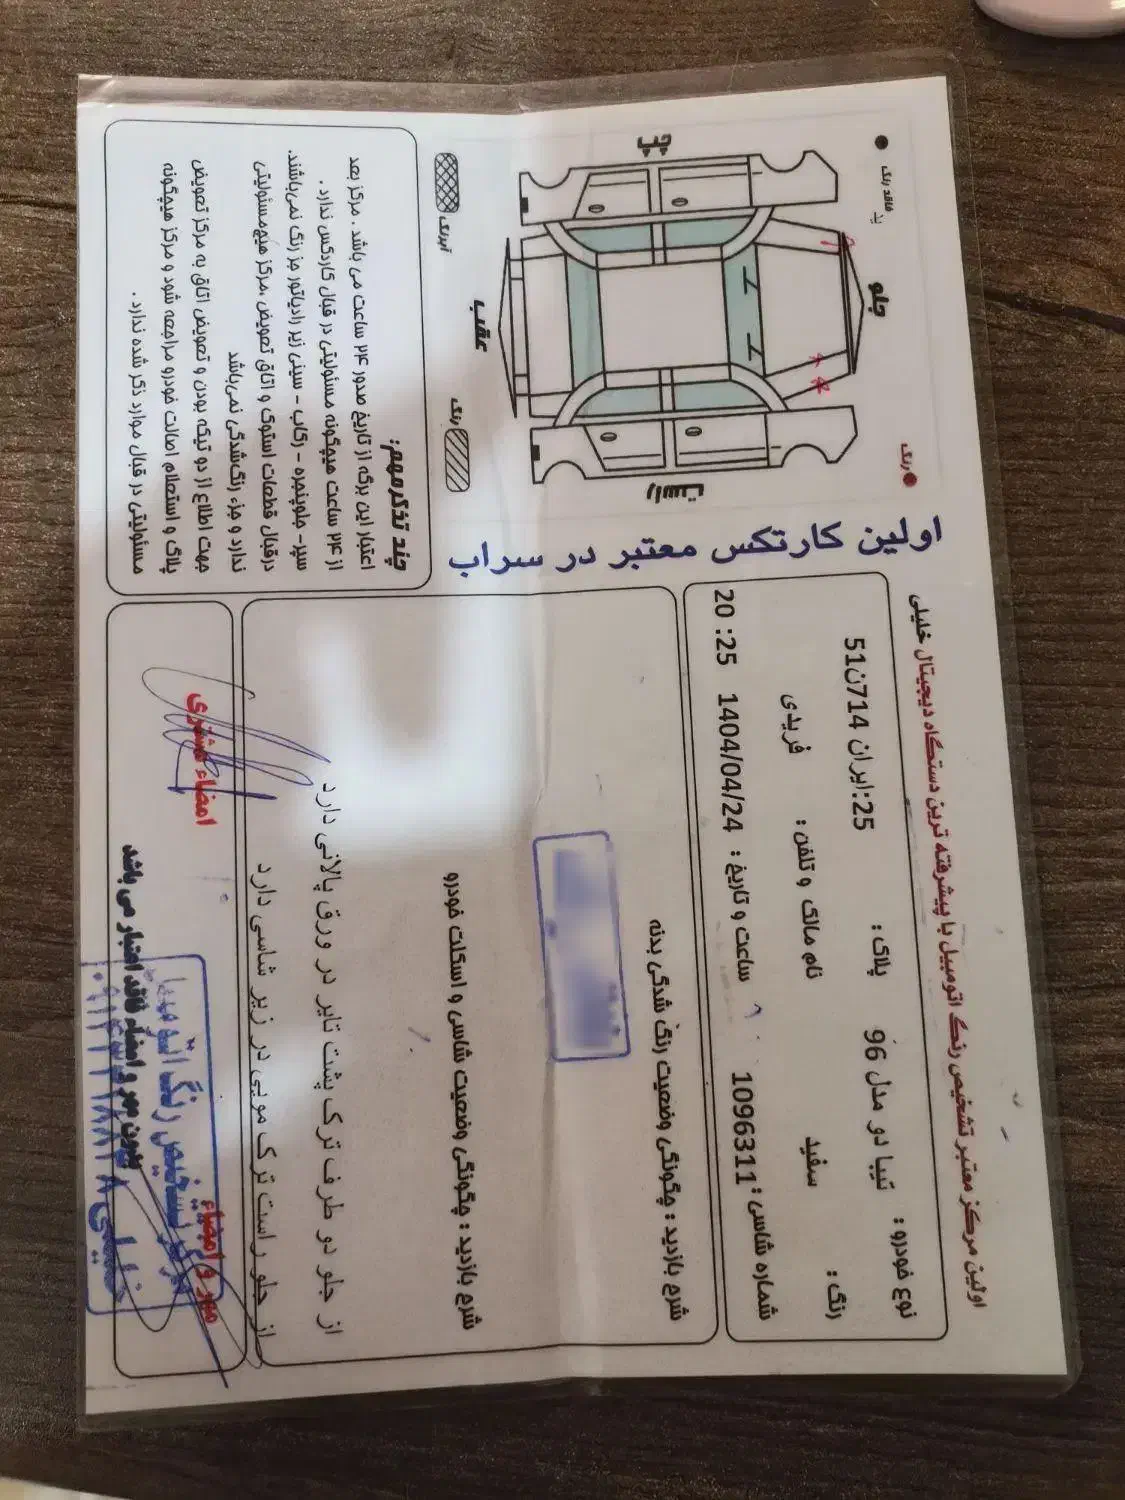 اولین مرکز معتبر تشخیص رنگ اتومبیل با پیشرفته ترین دستگاه دیجیتال خلیلی
نوع خودرو : تیبا دو مدل 96 پلاک : 25:ایران 714ن51
رنگ : سفید نام مالک و تلفن : فریدی
شماره شاسی : 1096311 ساعت و تاریخ : 1404/04/24 20:25
شرح بازدید : چگونگی وضعیت رنگ شدگی بدنه
شرح بازدید : چگونگی وضعیت شاسی و اسکلت خودرو
از جلو دو طرف ترک پشت تایر در ورق پالانی دارد
از جلو راست ترک مویی در زیر شاسی دارد
مهر و امضاء
امضاء مشتری
بدون مهر و امضاء فاقد اعتبار می باشد
مرکز تشخیص رنگ
خلیلی
اولین کارتکس معتبر در سراب
رنگ
فاقد رنگ
جلو
چپ
راست
عقب
رنگ
آبرنگ
چند تذکر مهم:
اعتبار این برگه از تاریخ صدور ۲۴ ساعت می باشد . مرکز بعد
از ۲۴ ساعت هیچگونه مسئولیتی در قبال کاردکس ندارد .
سپر- جلوپنجره - رکاب - سینی زیر رادیاتور جز رنگ نمی‌باشند.
درقبال قطعات استوک و اتاق تعویض ،مرکز هیچ‌مسئولیتی
ندارد و جزء رنگ‌شدگی نمی‌باشد
جهت اطلاع از دو تیکه بودن و تعویض اتاق به مرکز تعویض
پلاک و استعلام اصالت خودرو مراجعه شود و مرکز هیچگونه
مسئولیتی در قبال موارد ذکر شده ندارد .